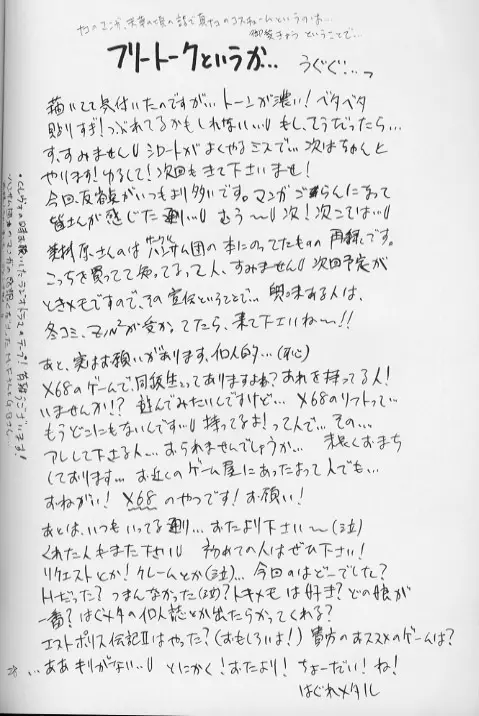 フリートークというか… うぐぐ…
描いてて気付いたのですが…トーンが濃い!ベタベタ
貼りすぎ!つぶれてるかもしれない…もし、そうだったら…
す、すみませんシロートがよくやるミスで…次はちゃんと
やります!ゆるして!次回もきて下さいませ!
今回、反省点がいつもより多いです。マンガごらんになって
皆さんが感じた通り…むぅ〜次!次こそは…
さんのはハンサム団の本にのってたものの再録です。
こっちを買ってて知ってるって人、すみません 次回予定が
ときメモですので、その宣伝ということで…興味ある人は、
冬コミ、受かってたら、来て下さいね〜!!
あと、実はお願いがあります、個人的…(死)
X68のゲームで、同級生ってありますよね?あれを持ってる人!
いませんか!?遊んでみたいんですけど…X68のソフトって…
もうどこにもないんです…持ってるよ!って人で…その…
アレして下さる人…おられませんでしょうか… 末長くおまち
しております…お近くのゲーム屋にあったよって人でも…
おねがい!X68のやつです!お願い!
あとは、いつもいってる通り…おたより下さい〜(泣)
くれた人もまた下さい 初めての人はぜひ下さい!
リクエストとか!クレームとか(泣)…今回のはどーでした?
Hだった?つまんなかった(泣)?トキメモは好き?どの娘が
一番?はぐメタの個人誌とか出たらかってくれる?
エストポリス伝記IIはやった?(おもしろいよ!)貴方のおススメのゲームは?
…ああ きりがない… とにかく!おたより!ちょーだい!ね!
はぐれメタル